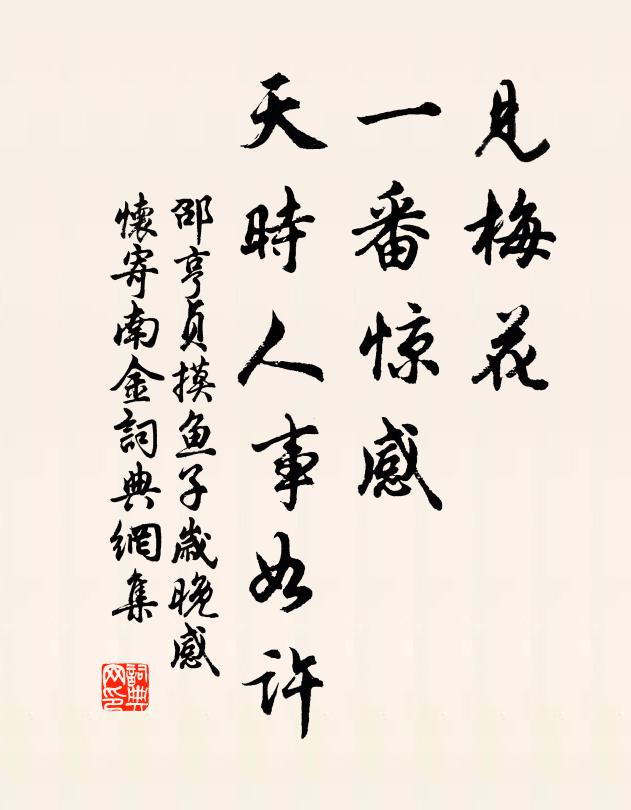 見梅花
一番惊感
天時人事如許
邵亨貞摸鱼子歲晚感
懷寄南金詞典網集
詞典网印